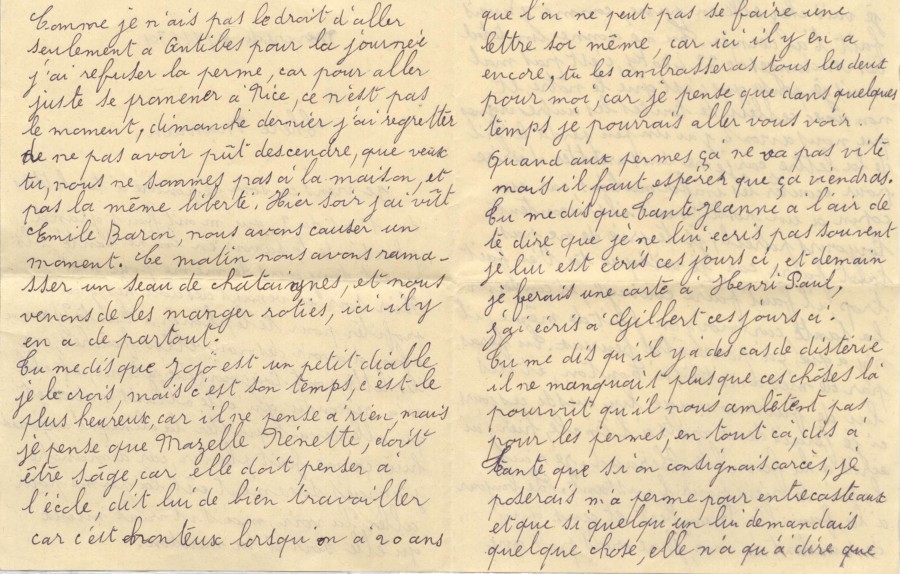 Comme je n'ais pas le droit d'aller
seulement à Antibes pour la journée
j'ai refuser la perme, car pour aller
juste se promener à Nice, ce n'est pas
le moment, dimanche dernier j'ai regretter
de ne pas avoir pût descendre, que veux
tu, nous ne sommes pas à la maison, et
pas la même liberté. Hier soir j'ai vût
Emile Baron, nous avons causer un
moment. Ce matin nous avons rama-
sser un seau de châtaignes, et nous
venons de les manger roties, ici il y
en a de partout.
Tu me dis que Jojo est un petit diable
je le crois, mais c'est son temps, c'est le
plus heureux, car il ne pense à rien, mais
je pense que Mazelle Nénette, doit
être sâge, car elle doit penser à
l'école, dit lui de bien travailler
car c'est honteux lorsqu'on à 20 ans
que l'on ne peut pas se faire une
lettre soi même, car ici il y en a
encore, tu les ambrasseras tous les deux
pour moi, car je pense que dans quelques
temps je pourrais aller vous voir.
Quand aux permes ça ne va pas vite
mais il faut espérer que ça viendras.
Tu me dis que Tante Jeanne à l'air de
te dire que je ne lui écris pas souvent
je lui est écris ces jours ci, et demain
je ferais une carte à Henri Paul,
j'ai écris à Gilbert ces jours ci.
Tu me dis qu'il y à des cas de distérie
il ne manquait plus que ces chôses là
pourvût qu'il nous ambêtent pas
pour les permes, en tout cà, dis à
Tante que si on consignais carcès, je
poserais ma perme pour entrecasteaux
et que si quelqu'un lui demandais
quelque chose, elle n'a qu'à dire que